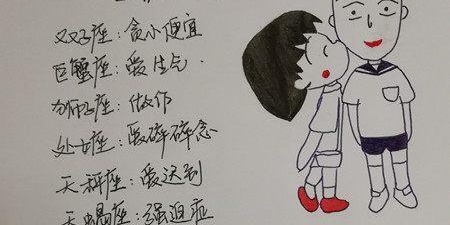 双子座：贪小便宜
巨蟹座：爱生气
狮子座：做作
处女座：爱碎碎念
天秤座：爱迟到
天蝎座：强迫症